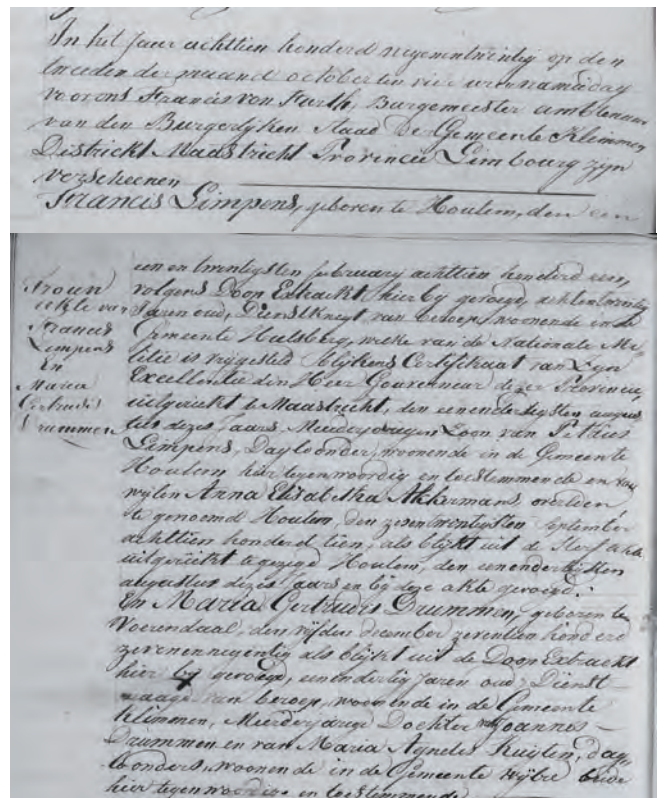 In het Jaar achttien honderd negenentwintig op den
tweeden der maand october ten vier uren namiddag
voor ons Francis von Furth, Burgemeester ambtenaar
van den Burgerlijken Staad der Gemeente Klimmen
Districkt Maastricht Provincie Limbourg zijn
verscheenen
Francis Limpens, geboren te Houlem, den een
Trouw
ackte van
Francis
Limpens
En
Maria
Gertrudis
Drummen
een en twintigsten february achttien honderd een,
volgens Doop Extrackt, hier by gevoegd, achtentwintig
Jaren oud, Dienstknegt van beroep, woonende in de
Gemeente Hulsberg, welke van de Nationale Mi-
litie is vrygesteld blijkens Certificaat van Zyn
Excellentie den Heer Gouverneur dezer Provincie,
uitgereikt te Maastricht, den eenendertigsten augus
tus dezes Jaars Meerderjarigen Zoon van Petrus
Limpens, Dagloonder, woonende in de Gemeente
Houlem hier tegenwoordig en toestemmende en van
wijlen Anna Elisabetha Akkermans, overleden
te genoemd Houlem, den zevenentwintigsten September
achttien honderd tien, als blijkt uit de Sterf akte
uitgereikt te gezegd Houlem, den eenendertigsten
augustus dezes Jaars en bij deze akte gevoegd.
En Maria Gertrudis Drummen, geboren te
Voerendaal, den vijfden december zeventien honderd
zevenennegentig als blijkt uit de Doop Extrackt
hier by gevoegd, eenendertig Jaren oud, Dienst-
maagd van beroep, woonende in de Gemeente
Klimmen, Meerderjarige Dochter van Joannes
Drummen en van Maria Agneles Kuyten, dag
loonders, woonende in de Gemeente Wijlre beide
hier tegenwoordig en toestemmende